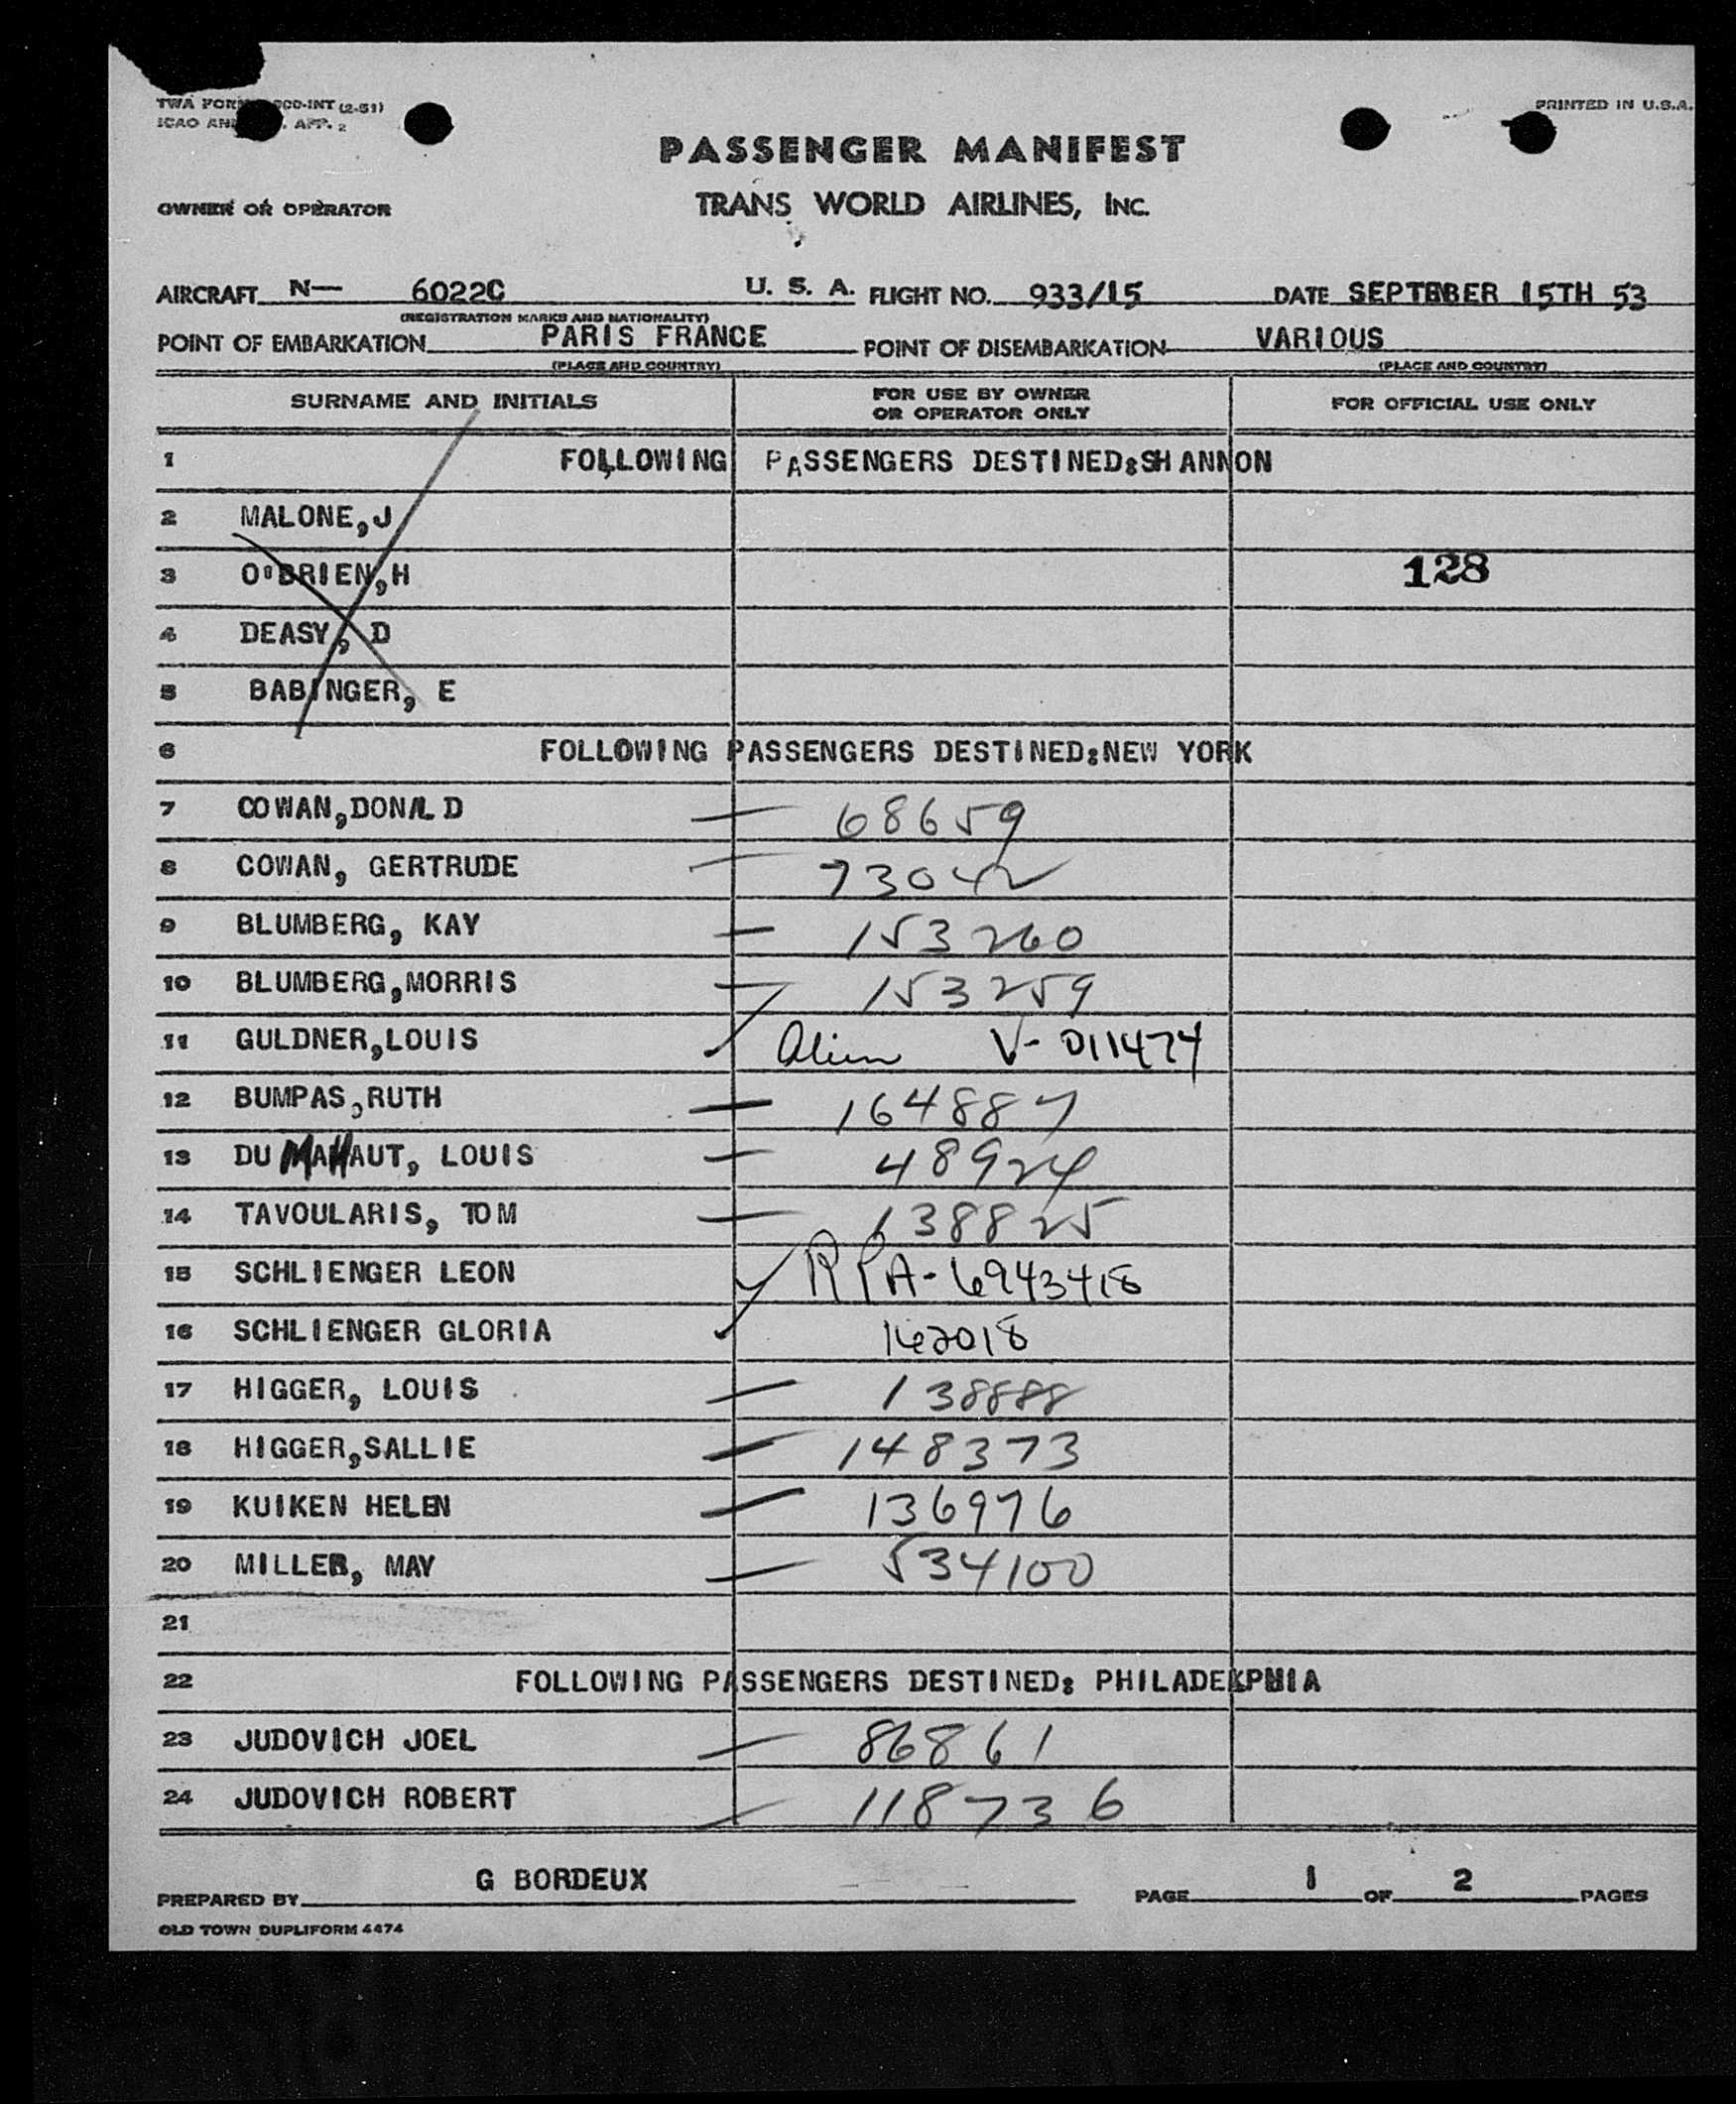 TWA FORM 900-INT (2-51)
ICAO AN . APP. 2
PRINTED IN U.S.A.
PASSENGER MANIFEST
OWNER OR OPERATOR TRANS WORLD AIRLINES, INC.
AIRCRAFT N— 6022C U. S. A. FLIGHT NO. 933/15 DATE SEPTEMBER 15TH 53
(REGISTRATION MARKS AND NATIONALITY)
POINT OF EMBARKATION PARIS FRANCE POINT OF DISEMBARKATION VARIOUS
(PLACE AND COUNTRY) (PLACE AND COUNTRY)
SURNAME AND INITIALS FOR USE BY OWNER OR OPERATOR ONLY FOR OFFICIAL USE ONLY
1 FOLLOWING PASSENGERS DESTINED:SHANNON
2 MALONE,J
3 O'BRIEN,H 128
4 DEASY, D
5 BABINGER, E
6 FOLLOWING PASSENGERS DESTINED:NEW YORK
7 COWAN,DONALD — 68659
8 COWAN, GERTRUDE — 73042
9 BLUMBERG, KAY — 153260
10 BLUMBERG,MORRIS — 153259
11 GULDNER,LOUIS ✓ Alien V-011474
12 BUMPAS,RUTH — 164887
13 DU MAHAUT, LOUIS — 48924
14 TAVOULARIS, TOM — 138825
15 SCHLIENGER LEON ✓ RPA-6943418
16 SCHLIENGER GLORIA ✓ 162018
17 HIGGER, LOUIS — 138888
18 HIGGER,SALLIE — 148373
19 KUIKEN HELEN — 136976
20 MILLER, MAY — 534100
21
22 FOLLOWING PASSENGERS DESTINED: PHILADEKPHIA
23 JUDOVICH JOEL — 86861
24 JUDOVICH ROBERT — 118736
PREPARED BY G BORDEUX PAGE 1 OF 2 PAGES
OLD TOWN DUPLIFORM 4474